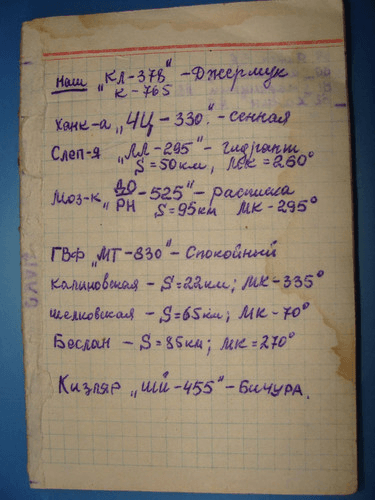 Наш „КЛ-378" - Джермук
К-765
Ханк-а „ЧЦ-330" - сенная
Слеп-я „ЛЛ-295" - гидрант
S=50км, МК=260°
Моз-к „ДО/РН-525" - расписка
S=95км МК-295°
ГВФ „МТ-830" - Спокойный
Калиновская - S=22км; МК-335°
шелковская - S=65км; МК-70°
Беслан - S=85км; МК=270°
Кизляр „ШЙ-455" - Бичура.